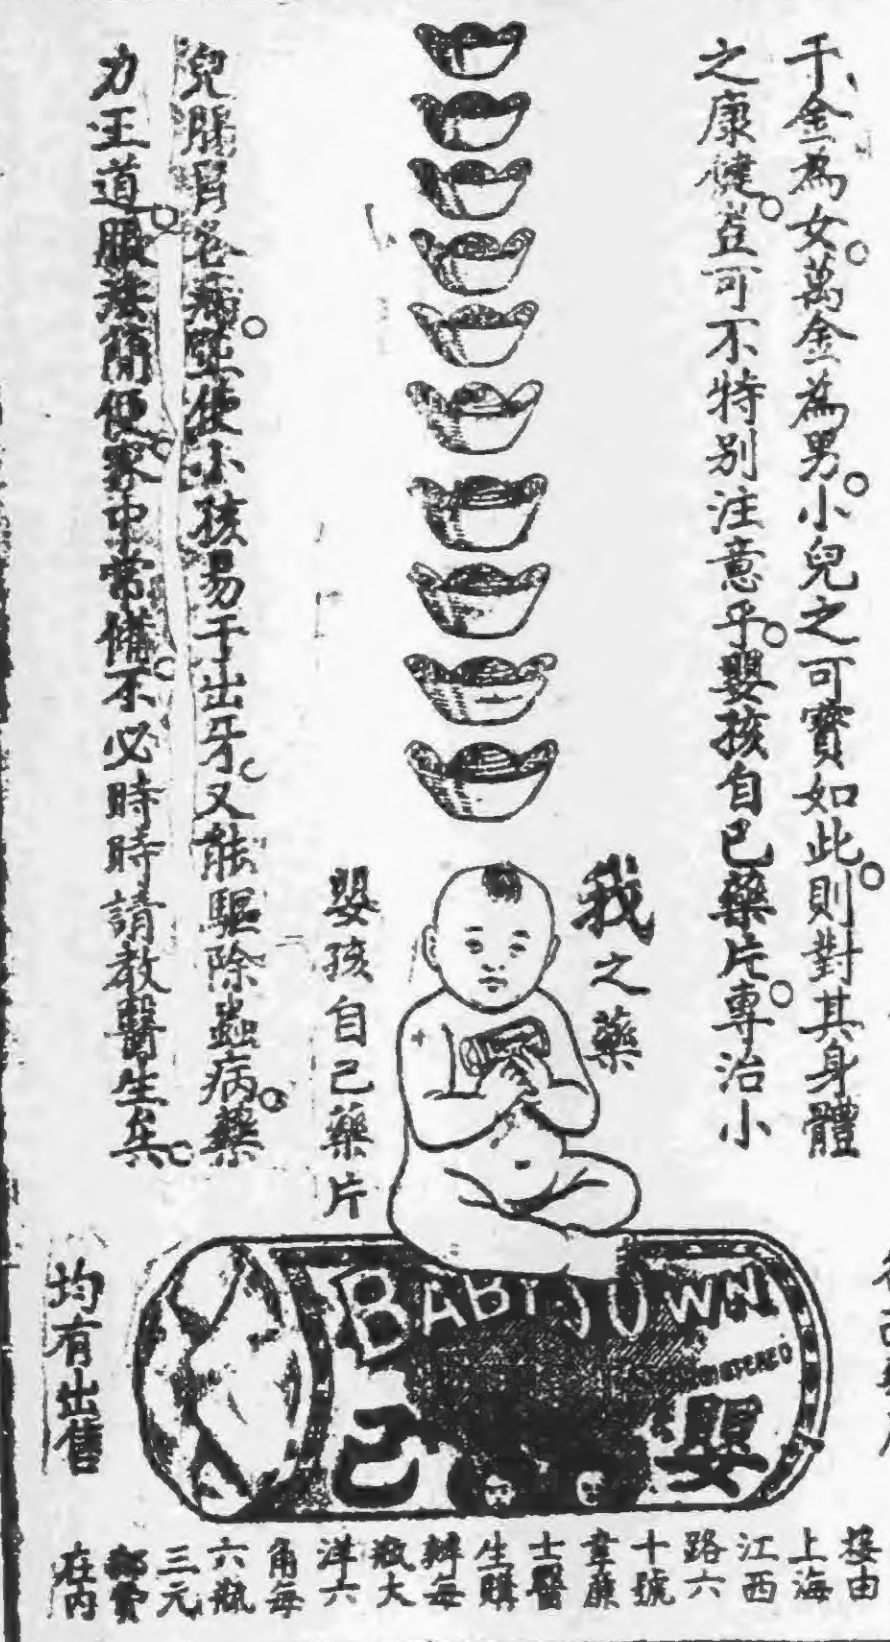 千金為女。萬金為男。小兒之可寶如此。則對其身體
之康健。豈可不特別注意乎。嬰孩自己藥片。專治小
兒腸胃各病。能使小孩易于出牙。又能驅除蟲病。藥
力王道。服法簡便。家中常備。不必時時請教醫生矣。
我之藥
嬰孩自己藥片
BABY'S OWN
嬰
己
均有出售
接由
上海
江西
路六
十號
韋廉
士醫
生購
辦每
瓶大
洋六
角每
六瓶
三元
郵費
在內